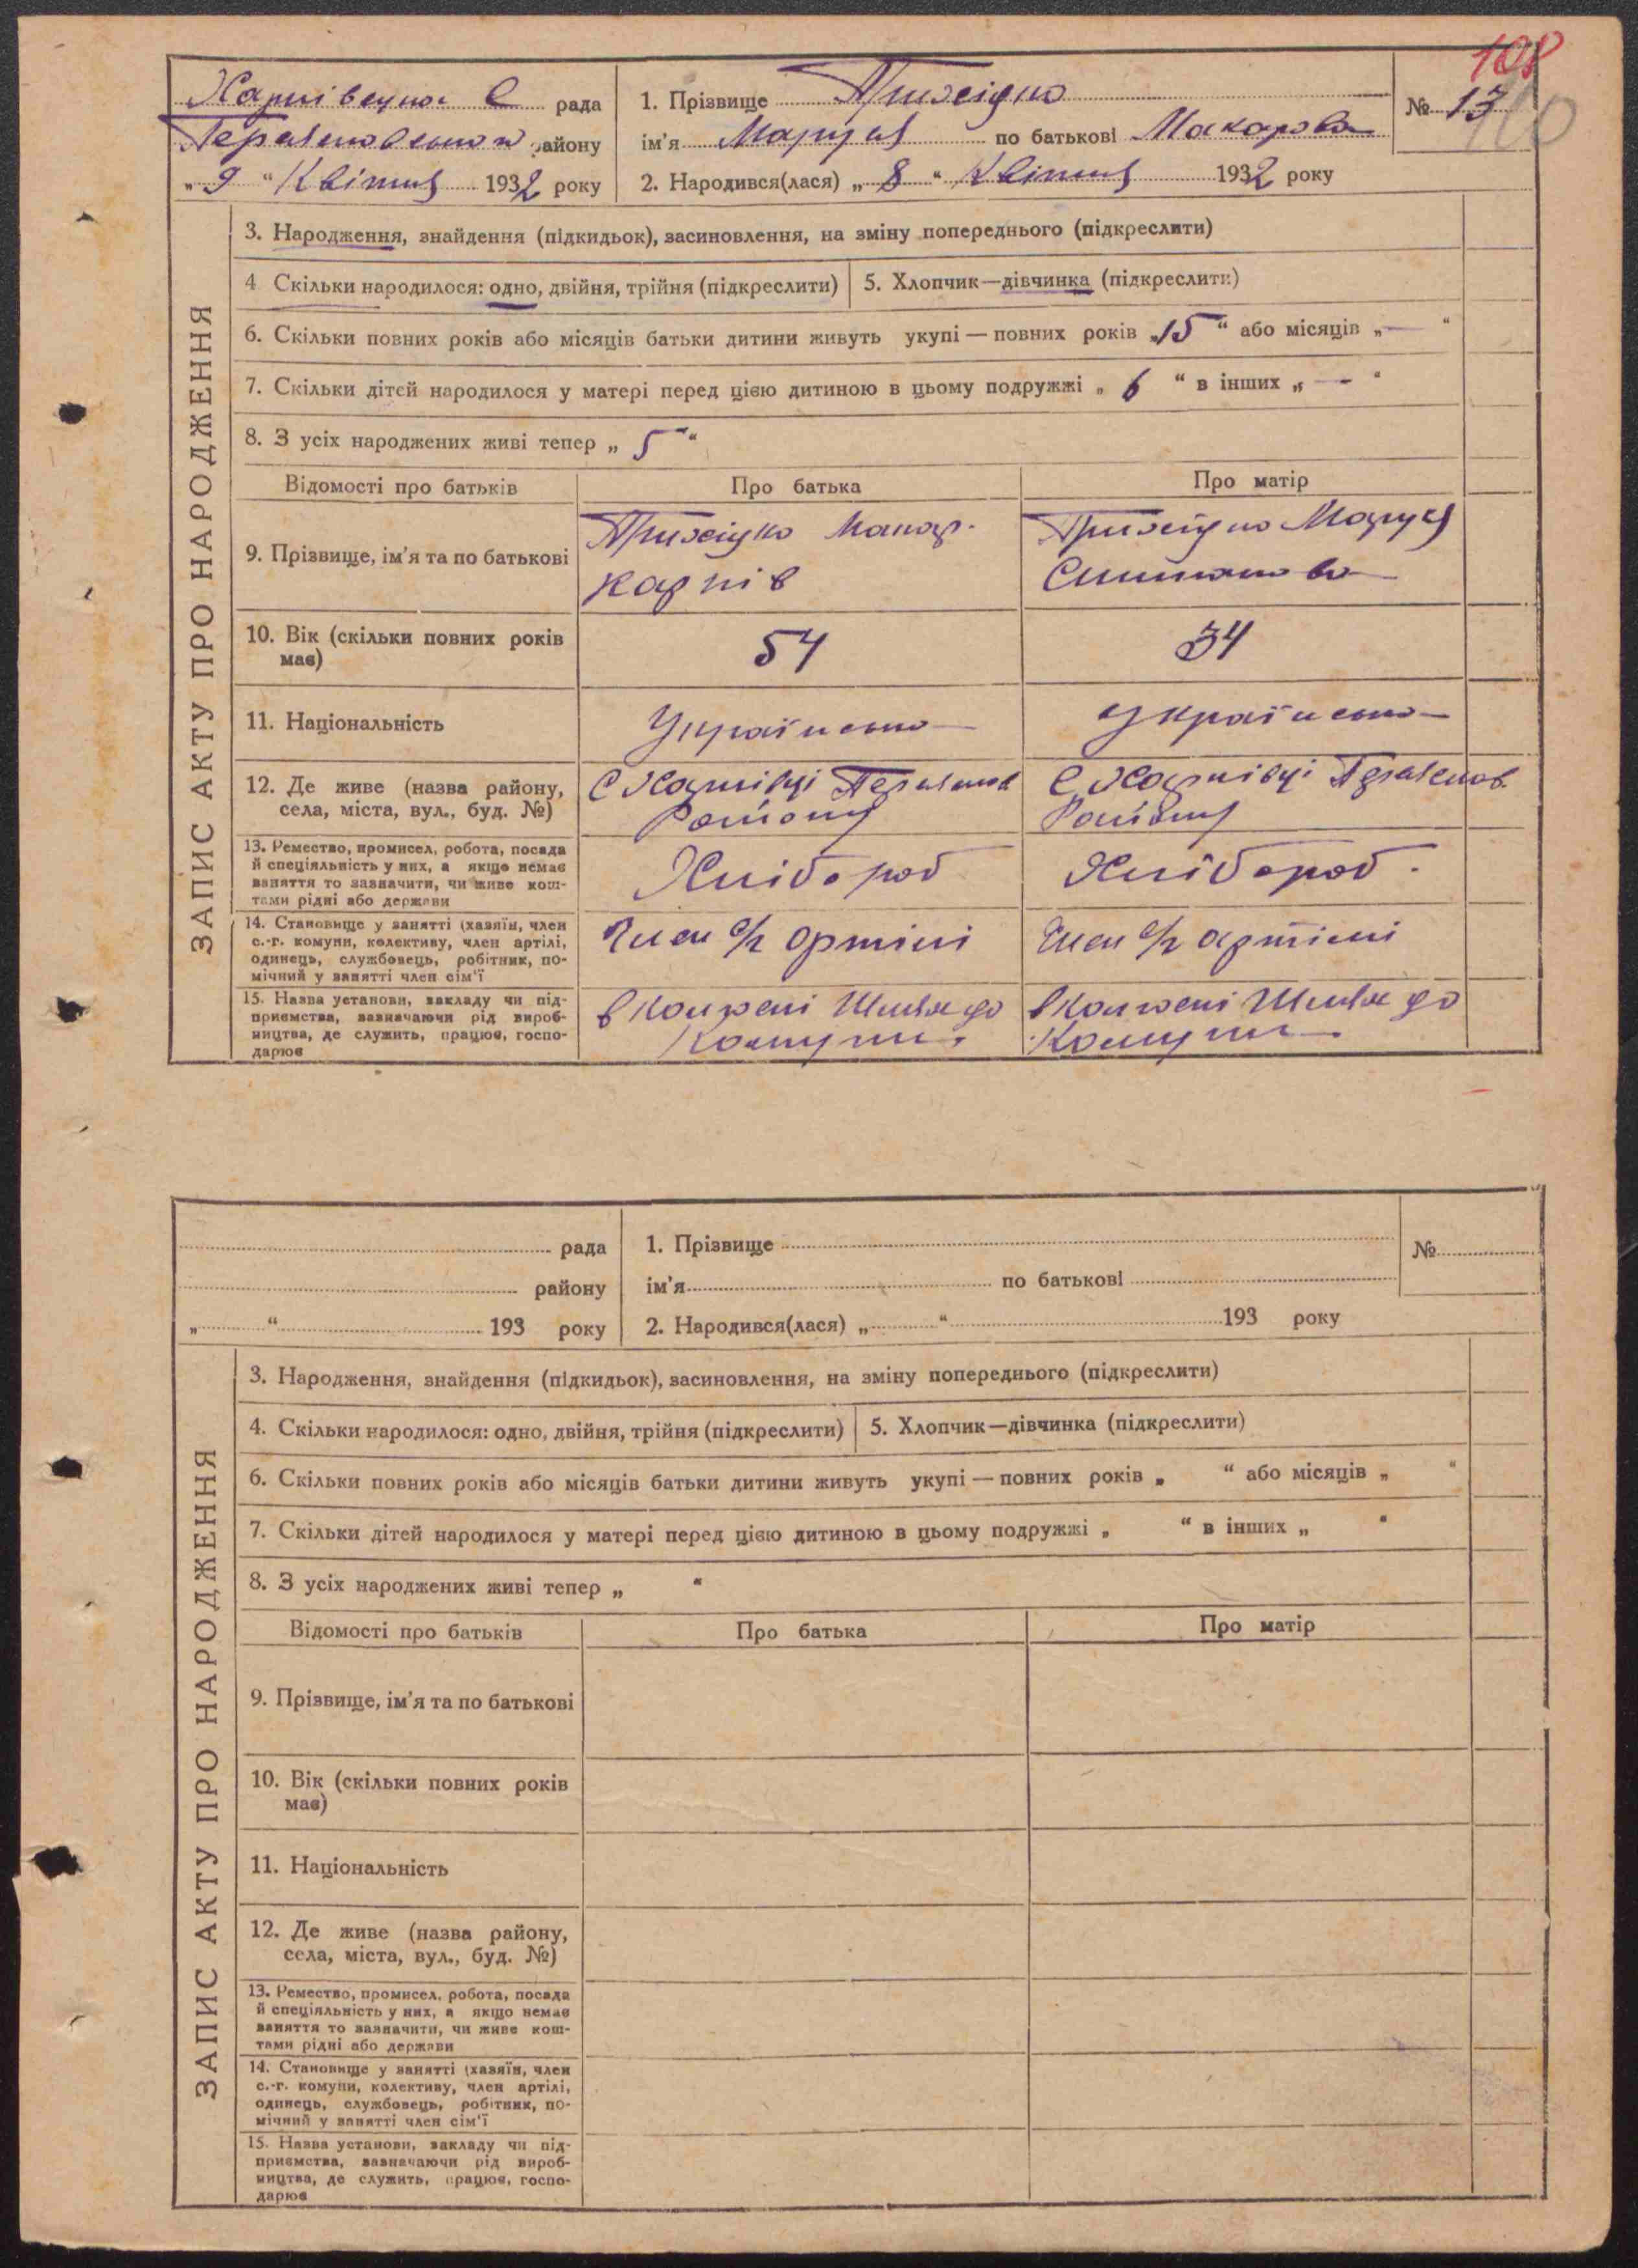 108
Харківецька С рада
района
„ 9 “ Квітня 1932 року
1. Прізвище Прихідько
ім'я Маруся по батькові Макарова
2. Народився(лася) „ 8 “ Квітня 1932 року
№ 13
ЗАПИС АКТУ ПРО НАРОДЖЕННЯ
3. Народження, знайдення (підкидьок), засиновлення, на зміну попереднього (підкреслити)
4 Скільки народилося: одно, двійня, трійня (підкреслити)
5. Хлопчик—дівчинка (підкреслити)
6. Скільки повних років або місяців батьки дитини живуть укупі — повних років „ 15 “ або місяців „ — “
7. Скільки дітей народилося у матері перед цією дитиною в цьому подружжі „ 6 “ в інших „ — “
8. З усіх народжених живі тепер „ 5 “
Відомості про батьків
Про батька
Про матір
9. Прізвище, ім'я та по батькові
Прихідько Макар.
Карпів
Прихідько Маруся
10. Вік (скільки повних років
має)
54
34
11. Національність
Українська
Українська
12. Де живе (назва району,
села, міста, вул., буд. №)
С Харківці
Району
С Харківці
Району
13. Ремество, промисел, робота, посада
й спеціяльність у них, а якщо немає
заняття то зазначити, чи живе кош-
тами рідні або держави
Хлібороб
Хлібороб.
14. Становище у занятті (хазяїн, член
с.-г. комуни, колективу, член артілі,
одинець, службовець, робітник, по-
мічний у занятті член сім'ї
Член с/г артілі
Член с/г артілі
15. Назва установи, закладу чи під-
приємства, зазначаючи рід вироб-
ництва, де служить, працює, госпо-
дарює
в Колгоспі Шлях до
Комуни.
в Колгоспі Шлях до
Комуни
рада
району
„ “ 193 року
1. Прізвище
ім'я по батькові
2. Народився(лася) „ “ 193 року
№
ЗАПИС АКТУ ПРО НАРОДЖЕННЯ
3. Народження, знайдення (підкидьок), засиновлення, на зміну попереднього (підкреслити)
4. Скільки народилося: одно, двійня, трійня (підкреслити)
5. Хлопчик—дівчинка (підкреслити)
6. Скільки повних років або місяців батьки дитини живуть укупі — повних років „ “ або місяців „ “
7. Скільки дітей народилося у матері перед цією дитиною в цьому подружжі „ “ в інших „ “
8. З усіх народжених живі тепер „ “
Відомості про батьків
Про батька
Про матір
9. Прізвище, ім'я та по батькові
10. Вік (скільки повних років
має)
11. Національність
12. Де живе (назва району,
села, міста, вул., буд. №)
13. Ремество, промисел, робота, посада
й спеціяльність у них, а якщо немає
заняття то зазначити, чи живе кош-
тами рідні або держави
14. Становище у занятті (хазяїн, член
с.-г. комуни, колективу, член артілі,
одинець, службовець, робітник, по-
мічний у занятті член сім'ї
15. Назва установи, закладу чи під-
приємства, зазначаючи рід вироб-
ництва, де служить, працює, госпо-
дарює